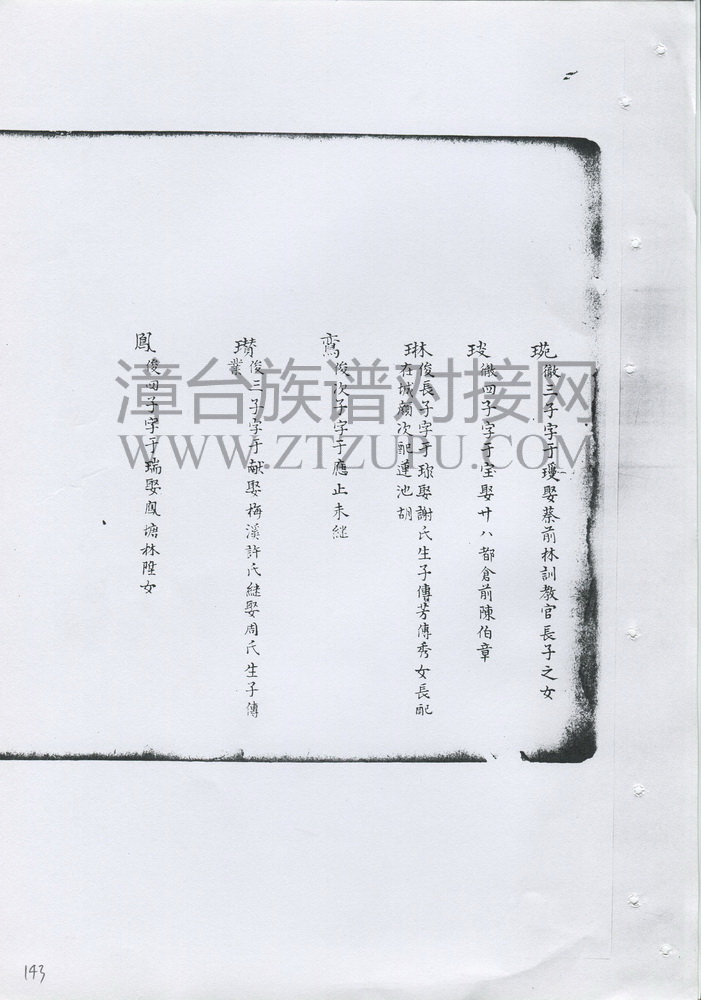 琬徽三子字于璦娶蔡前林訓教官長子之女
琰徽四子字于宝娶廿八都倉前陳伯章
琳俊長子字于琼娶謝氏生子傳芳傳秀女長配
在城顏次配蓮池胡
鸞俊次子字于應止未継
瓚俊三子字于献娶梅溪許氏継娶周氏生子傳
業
鳳俊四子字于瑞娶鳳塘林陞女
漳台族谱对接网
WWW.ZTZUPU.COM
143